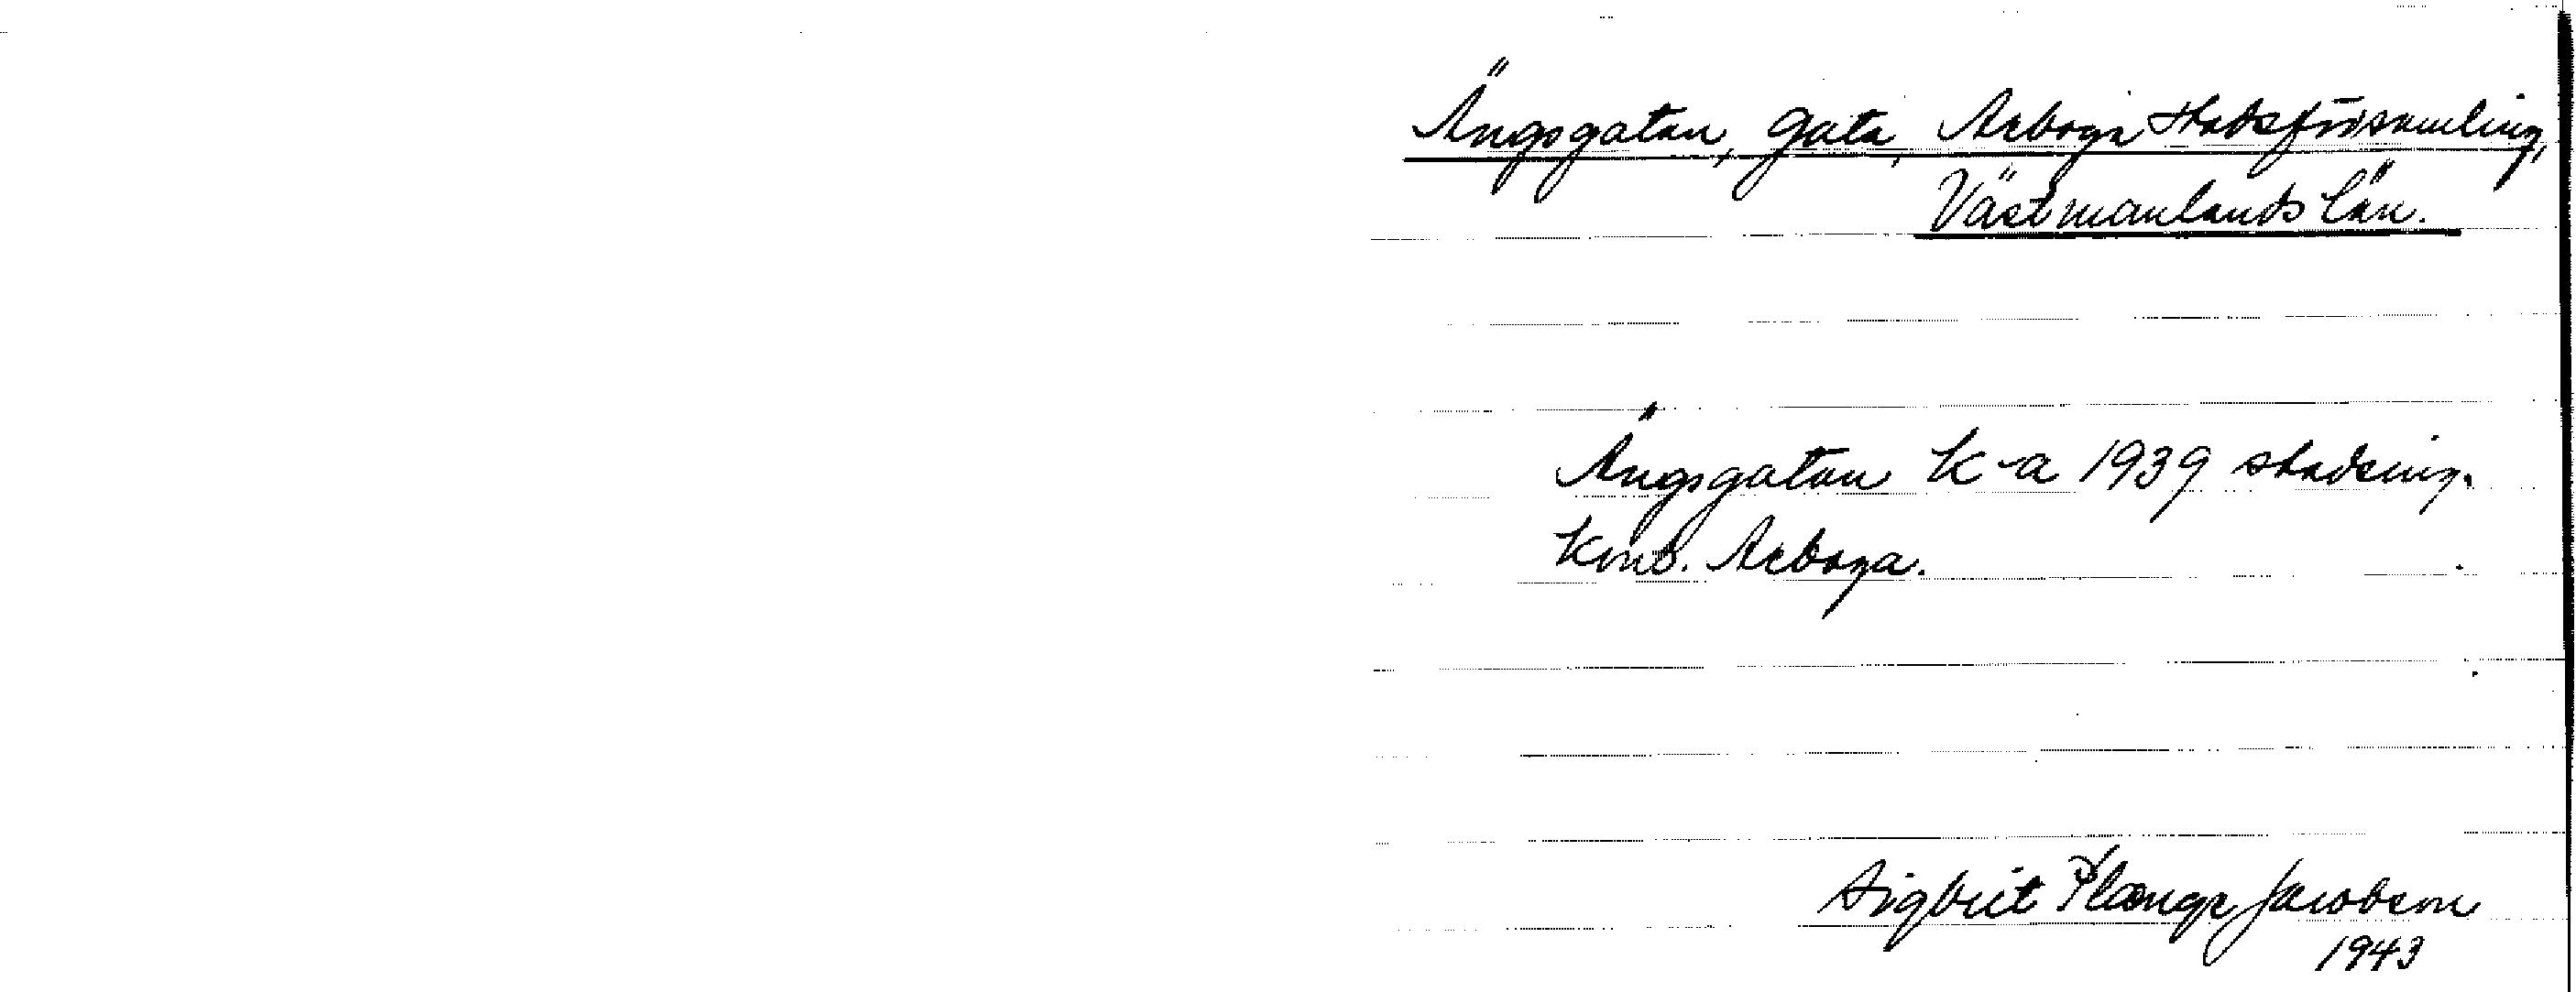 Ängsgatan, gata, Arboga stadsförsamling,
Västmanlands län.
Ängsgatan K-a 1939 stadsing.
kont. Arboga.
Sigbrit Plænge Jacobson
1943